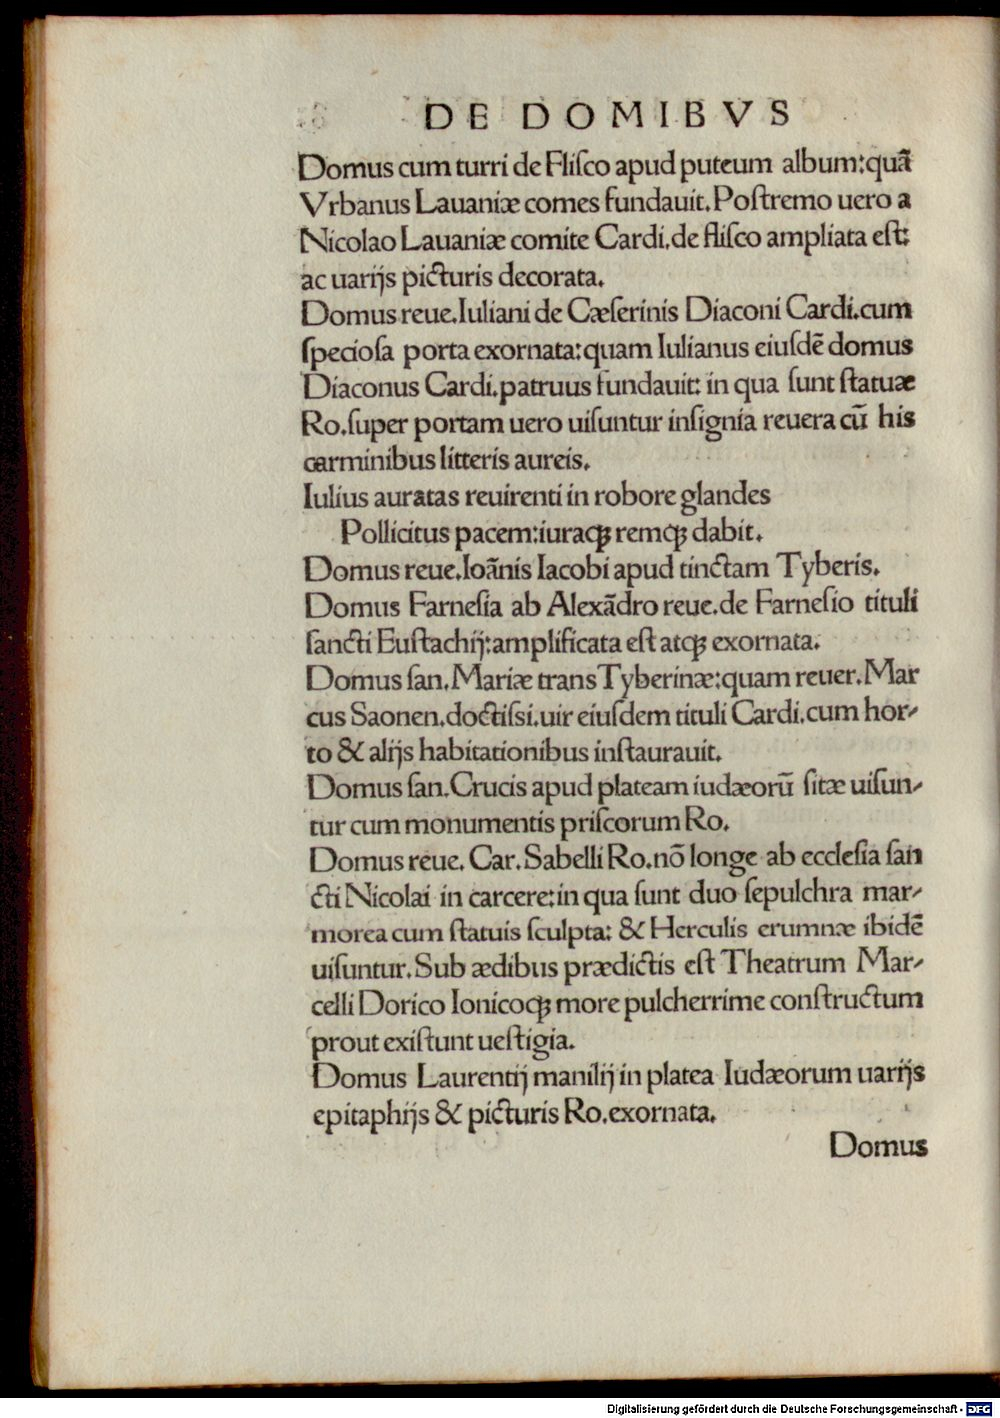 DE DOMIBVS
Domus cum turri de Fliſco apud puteum album:quã
Vrbanus Lauaniæ comes fundauit.Poſtremo uero a
Nicolao Lauaniæ comite Cardi.de fliſco ampliata eſt:
ac uarijs picturis decorata.
Domus reue.Iuliani de Cæſerinis Diaconi Cardi.cum
ſpecioſa porta exornata:quam Iulianus eiuſdẽ domus
Diaconus Cardi.patruus fundauit: in qua ſunt ſtatuæ
Ro.ſuper portam uero uiſuntur inſignia reuera cũ his
carminibus litteris aureis.
Iulius auratas reuirenti in robore glandes
Pollicitus pacem:iuraqꝫ remqꝫ dabit.
Domus reue.Ioãnis Iacobi apud tinctam Tyberis.
Domus Farneſia ab Alexãdro reue.de Farneſio tituli
ſancti Euſtachij:amplificata eſt atqꝫ exornata.
Domus ſan.Mariæ trans Tyberinæ:quam reuer.Mar
cus Saonen.doctiſſi.uir eiuſdem tituli Cardi.cum hor-
to & alijs habitationibus inſtaurauit.
Domus ſan.Crucis apud plateam iudæorũ ſitæ uiſun-
tur cum monumentis priſcorum Ro.
Domus reue. Car. Sabelli Ro.nõ longe ab eccleſia ſan
cti Nicolai in carcere:in qua ſunt duo ſepulchra mar-
morea cum ſtatuis ſculpta: & Herculis erumnæ ibidẽ
uiſuntur.Sub ædibus prædictis eſt Theatrum Mar-
celli Dorico Ionicoqꝫ more pulcherrime conſtructum
prout exiſtunt ueſtigia.
Domus Laurentij manilij in platea Iudæorum uarijs
epitaphijs & picturis Ro.exornata.
Domus
Digitalisierung gefördert durch die Deutsche Forschungsgemeinschaft - DFG